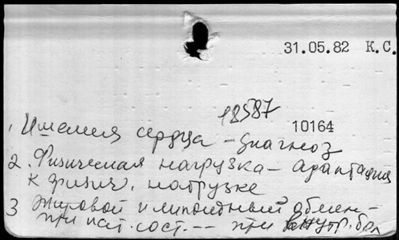 31.05.82 К.С.
18587
10164
1. Ишемия сердца – диагноз
2. Физическая нагрузка – адаптация
к физич. нагрузке
3 Жировой и липоидный обмен –
при пат. сост. –– при внутр. бол